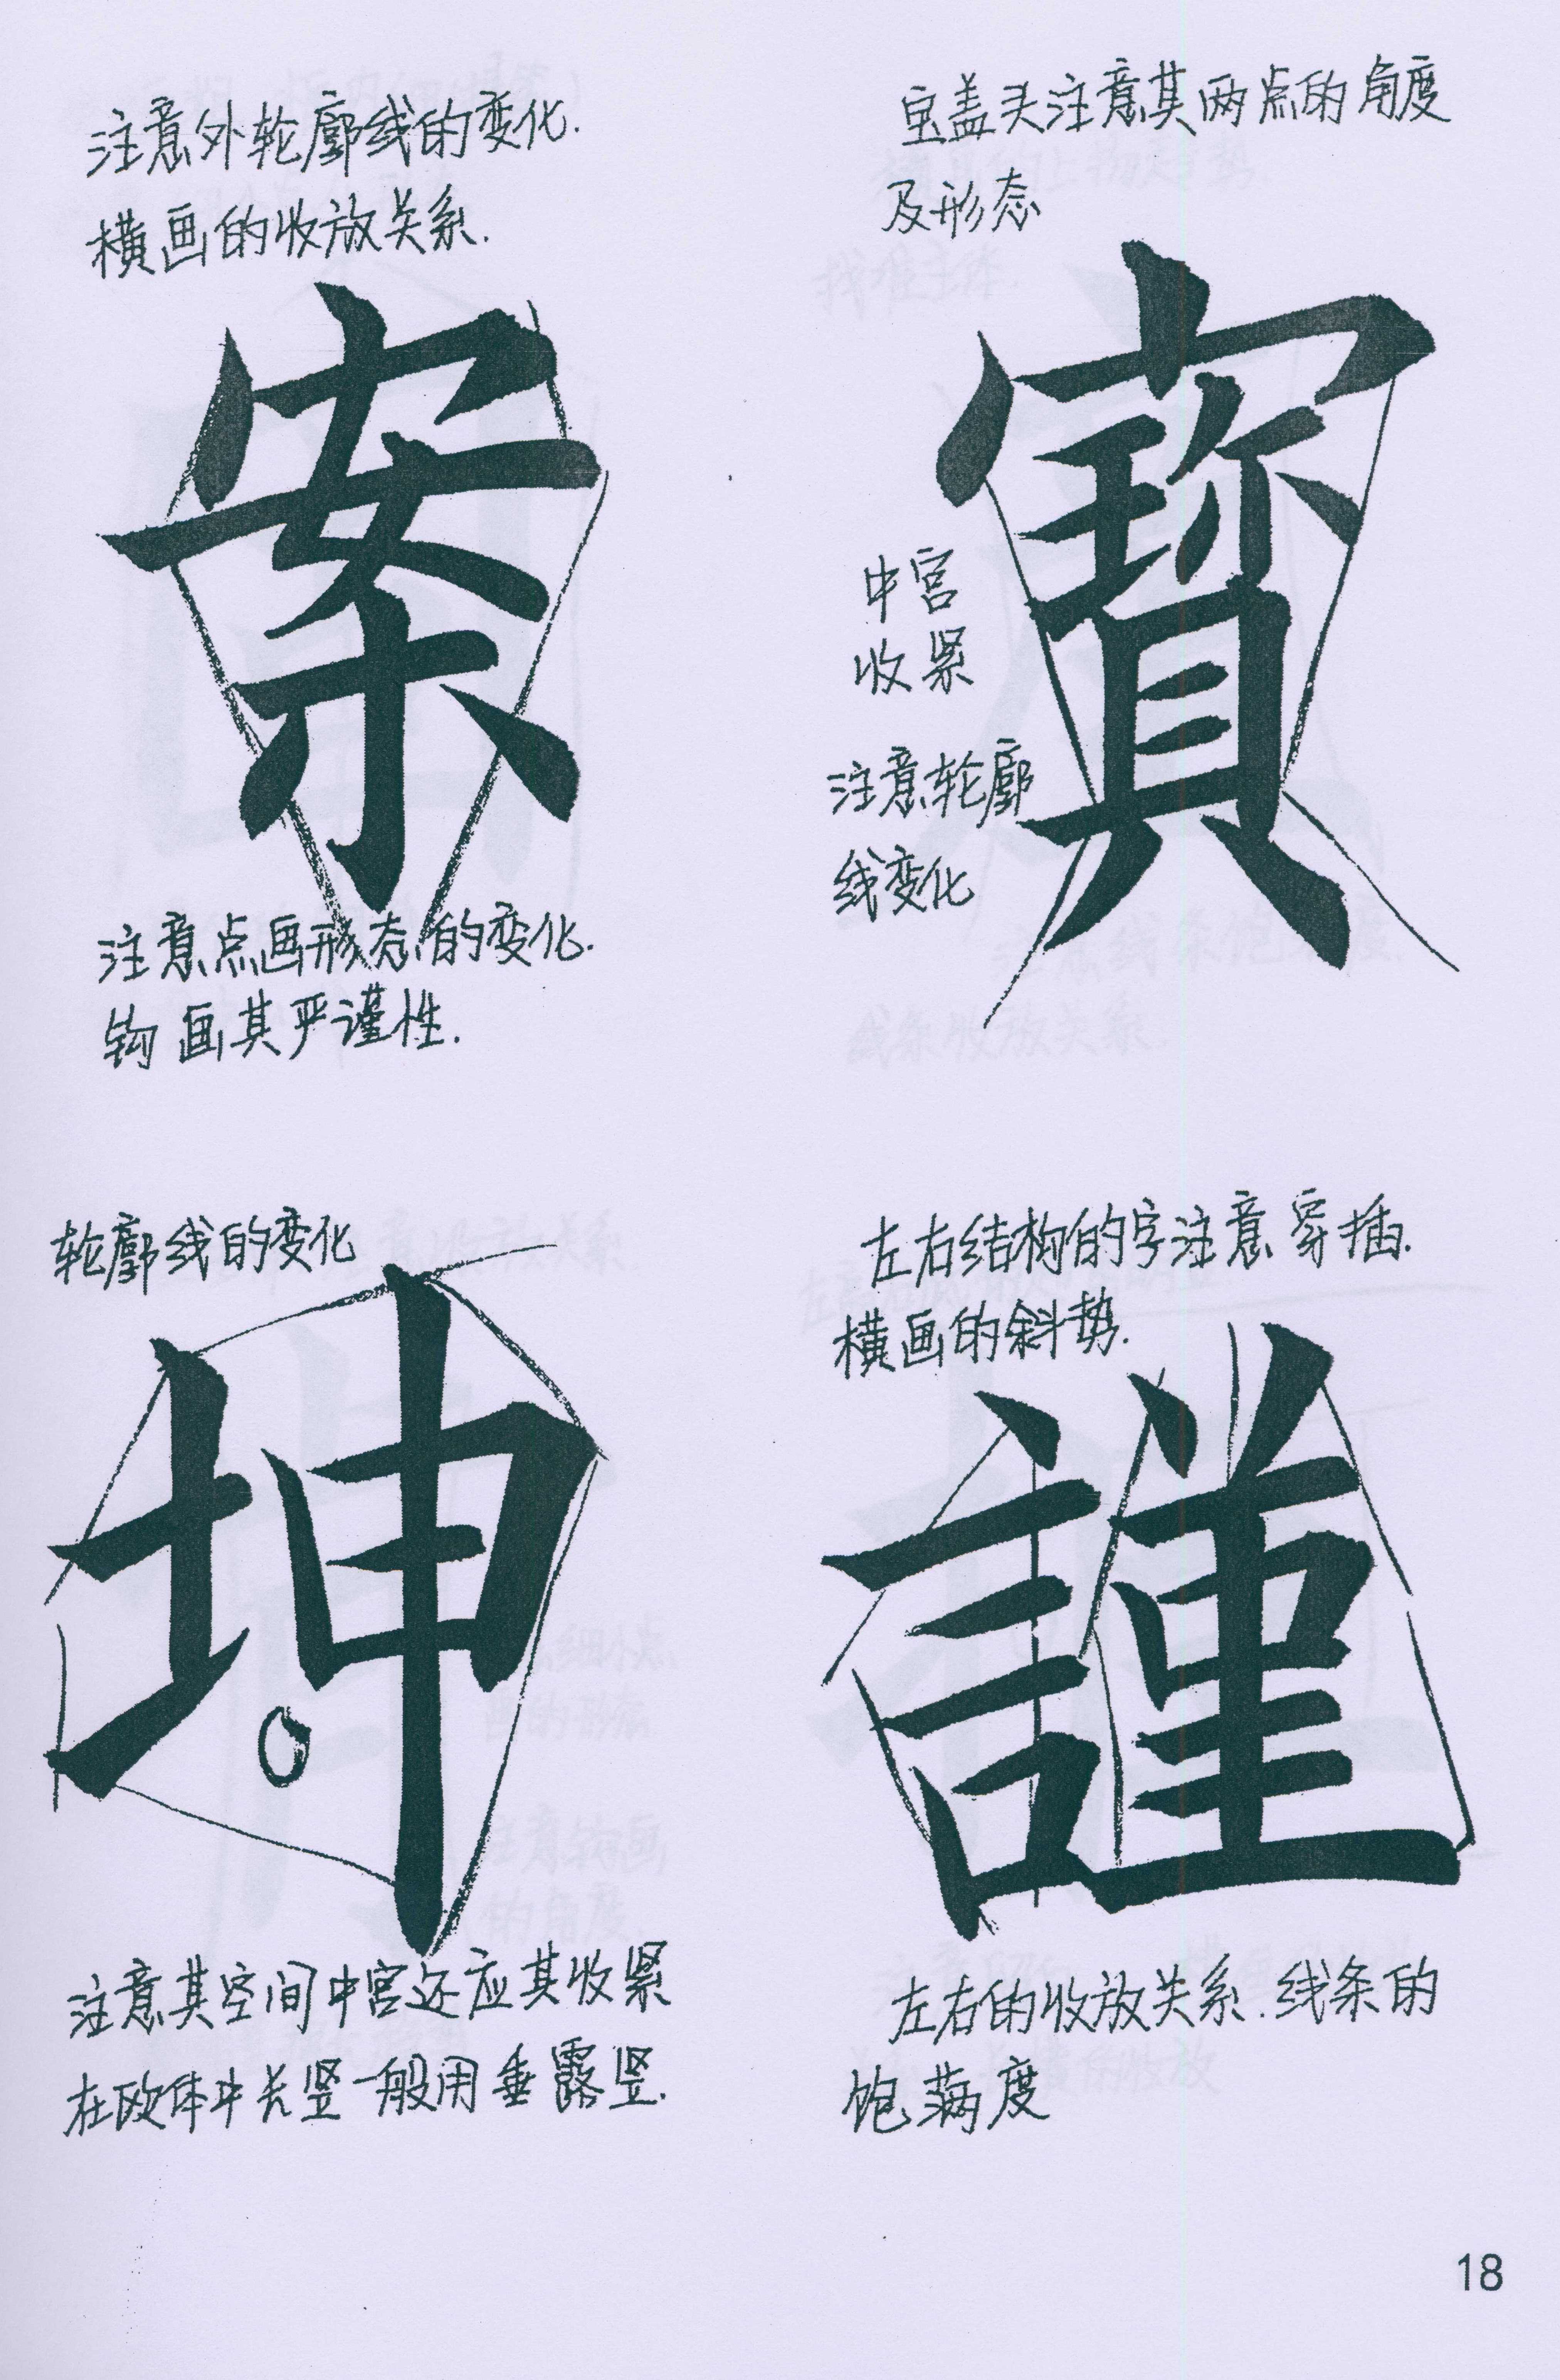 注意外轮廓线的变化.
横画的收放关系.
案
注意点画形态的变化.
钩画其严谨性.
宝盖头注意其两点的角度
及形态
寳
中宫
收紧
注意轮廓
线变化
轮廓线的变化
坤
注意其空间中宫还应其收紧
在欧体中长竖一般用垂露竖.
左右结构的字注意穿插.
横画的斜势.
謹
左右的收放关系.线条的
饱满度
18